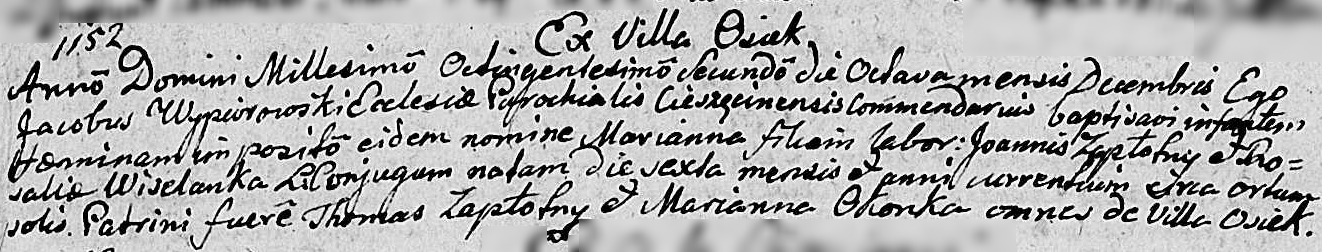 1152
Ex Villa Osiek
Annō Domini Millesimō Octingentesimō Secundō die Octava mensis Decembris Ego
Jacobus Wypiorowski Ecclesiæ Parochialis Cieszęcinensis Commendarius baptisavi infantem
fæminam impositō eidem nomine Marianna filiam labor: Joannis Zapłotny & Ro=
saliæ Wiselanka L. Conjugum natam die sexta mensis & anni currentium circa ortum
solis. Patrini fuerē Thomas Zapłotny & Marianna Okonka omnes de Villa Osiek.